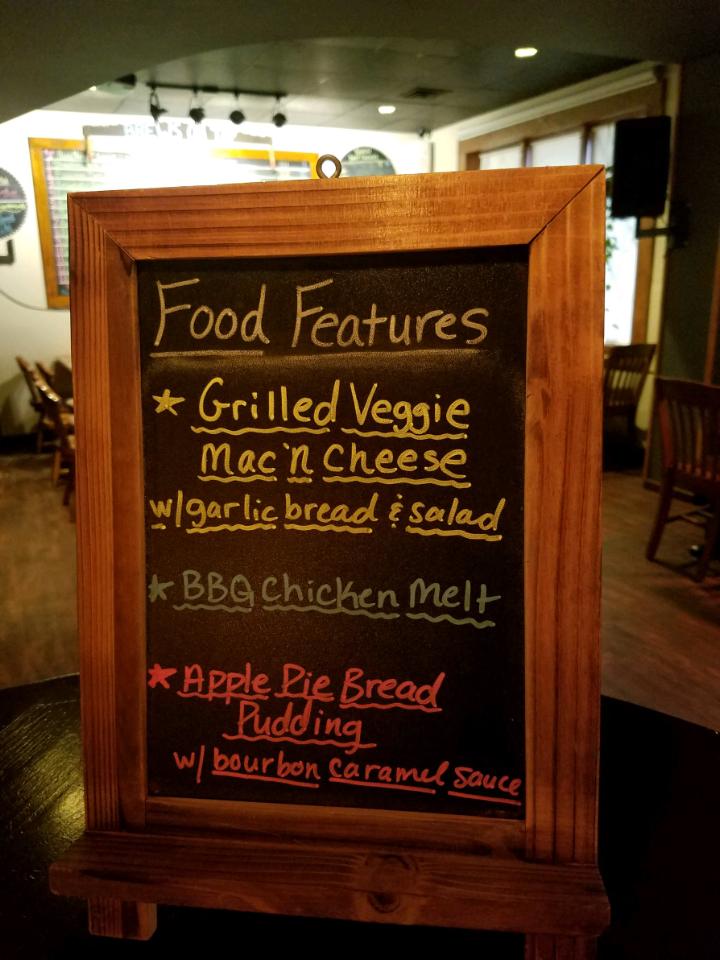 Food Features
★ Grilled Veggie
Mac 'n Cheese
w/garlic bread & salad
★ BBQ Chicken Melt
★ Apple Pie Bread
Pudding
w/ bourbon caramel sauce